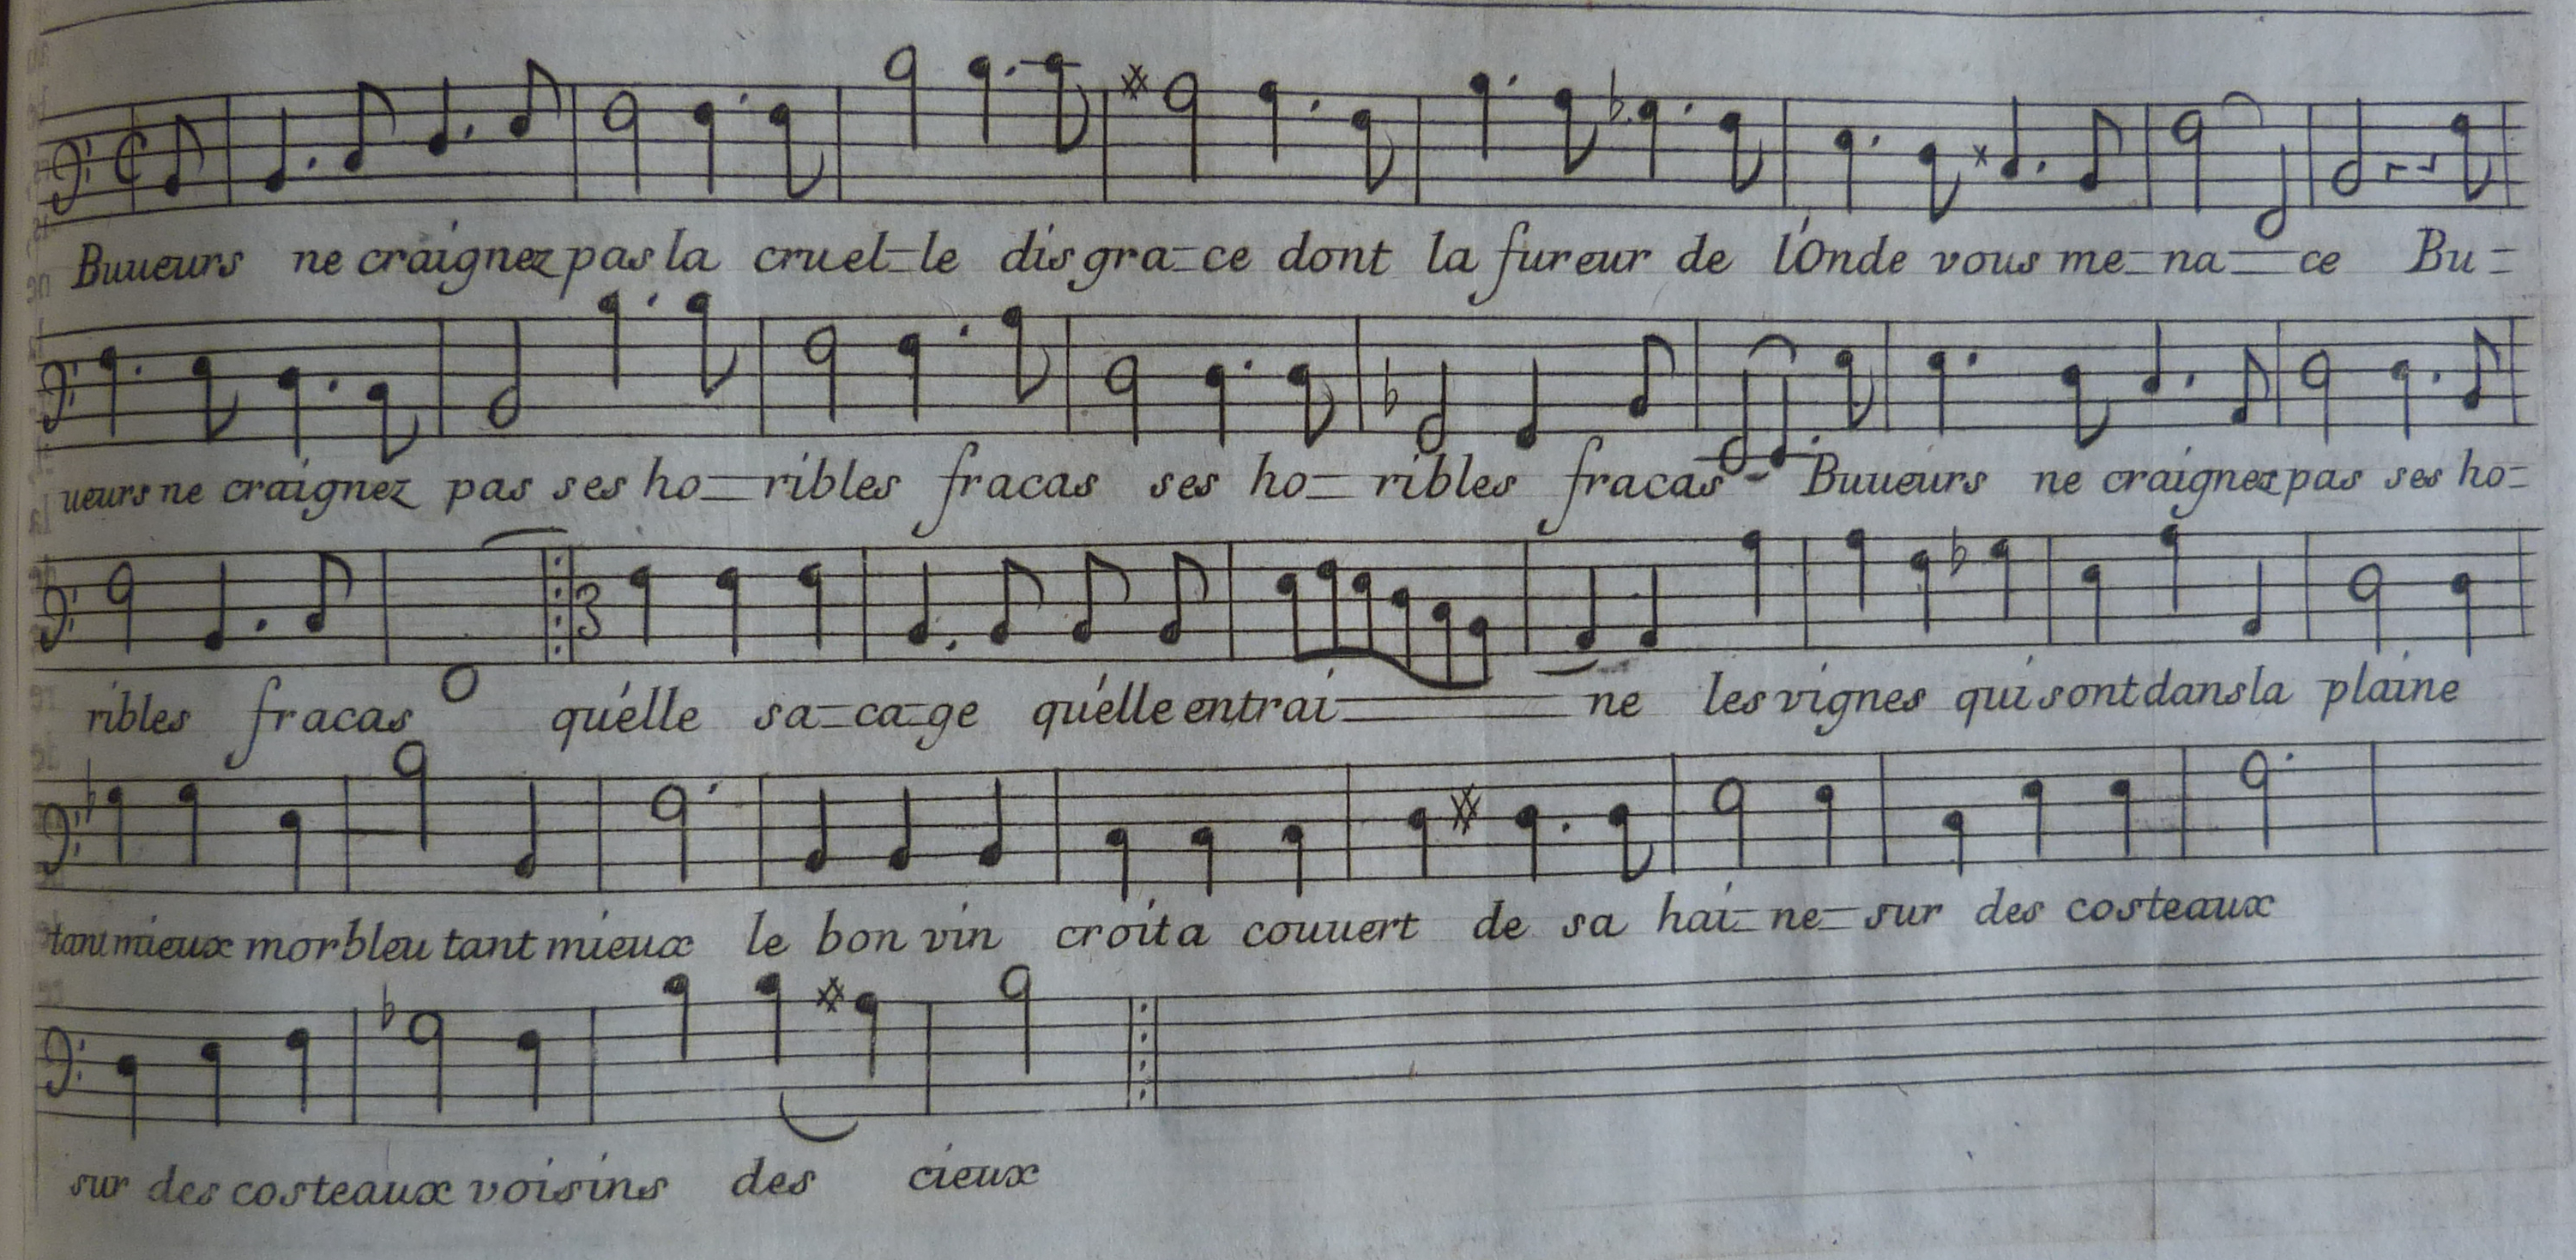 Buueurs ne craignez pas la cruel-le disgra-ce dont la fureur de l'Onde vous me-na-ce Bu-
ueurs ne craignez pas ses ho-ribles fracas ses ho-ribles fracas Buueurs ne craignez pas ses ho-
ribles fracas qu'elle sa-ca-ge qu'elle entrai-ne les vignes qui sont dans la plaine
tant mieux morbleu tant mieux le bon vin croit a couuert de sa hai-ne-sur des costeaux
sur des costeaux voisins des cieux